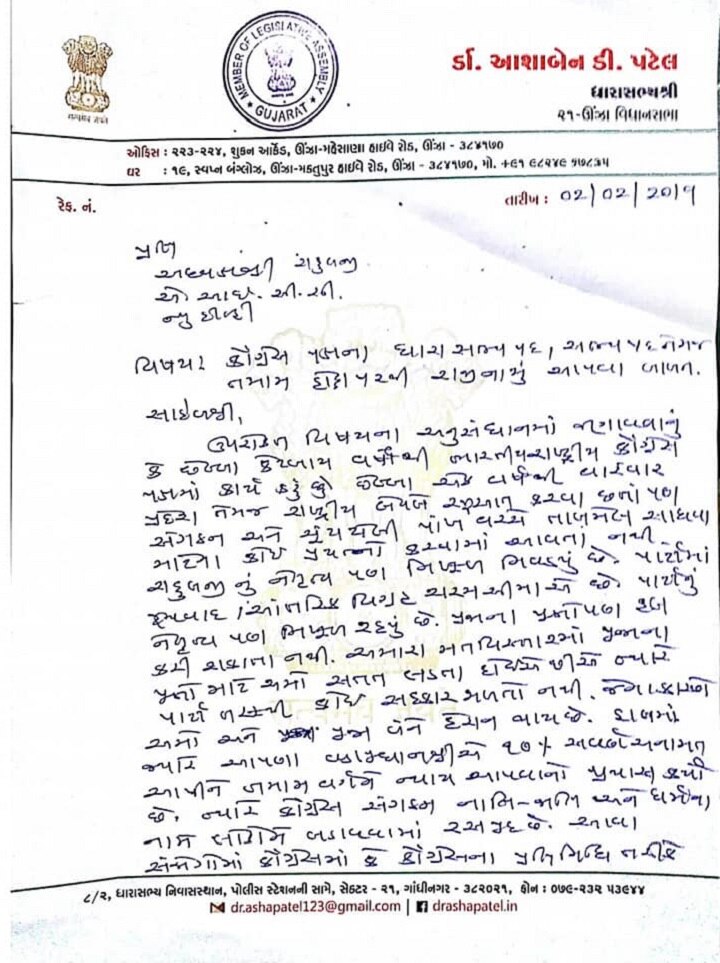 MEMBER OF LEGISLATIVE ASSEMBLY
GUJARAT
ડૉ. આશાબેન ડી. પટેલ
ધારાસભ્યશ્રી
૨૧-ઊંઝા વિધાનસભા
ઓફિસ : ૨૨૩-૨૨૪, શુકન આર્કેડ, ઊંઝા-મહેસાણા હાઇવે રોડ, ઊંઝા - ૩૮૪૧૭૦
ઘર : ૧૯, સ્વપ્ન બંગ્લોઝ, ઊંઝા-મક્તુપુર હાઇવે રોડ, ઊંઝા - ૩૮૪૧૭૦, મો. +૯૧ ૯૮૨૪૯ ૧૭૮૩૫
રેફ. નં.
તારીખ : 02/02/2019
પ્રતિ
અધ્યક્ષશ્રી રાહુલજી
એ આઈ. સી. સી.
ન્યુ દીલ્હી
વિષય: કોંગ્રેસ પક્ષના ધારાસભ્ય પદ, સભ્ય પદ તેમજ
તમામ હોદ્દા પરથી રાજીનામું આપવા બાબત.
સાહેબશ્રી,
ઉપરોક્ત વિષયના અનુસંધાનમાં જણાવવાનું
કે છેલ્લા કેટલાય વર્ષોથી ભારતીય રાષ્ટ્રીય કોંગ્રેસ
પક્ષમાં કાર્ય કરું છું છેલ્લા એક વર્ષથી વારંવાર
પ્રદેશ તેમજ રાષ્ટ્રીય લેવલે રજુઆત કરવા છતાં પણ
સંગઠન અને ચુંટાયેલી પાંખ વચ્ચે તાલમેલ સાધવા
માટેના કોઈ પ્રયત્નો કરવામાં આવતા નથી.
રાહુલજી નું નેતૃત્વ પણ નિષ્ફળ નિવડ્યું છે. પાર્ટીમાં
જૂથવાદ/આંતરિક વિગ્રહ ચરમસીમાએ છે પાર્ટીનું
નેતૃત્વ પણ નિષ્ફળ રહ્યું છે. પ્રજાના પ્રશ્નો પણ હલ
કરી શકાતા નથી. અમારા મતવિસ્તારમાં પ્રજાના
પ્રશ્નો માટે અમો સતત લડતા હોઈએ છીએ ત્યારે
પાર્ટી તરફથી કોઈ સહકાર મળતો નથી. જેના કારણે
અમો અને પ્રજા બંને હેરાન થાય છે. હાલમાં
જ્યારે આપણા વડાપ્રધાનશ્રીએ ૧૦% સવર્ણ અનામત
આપીને તમામ વર્ગને ન્યાય આપવાનો પ્રયાસ કર્યો
છે, ત્યારે કોંગ્રેસ સંગઠન જાતિ-જાતિ અને ધર્મના
નામે લોકોને લડાવવામાં રસપ્રદ છે. આવા
સંજોગોમાં કોંગ્રેસમાં કે કોંગ્રેસના પ્રતિનિધિ તરીકે
૮/૨, ધારાસભ્ય નિવાસસ્થાન, પોલીસ સ્ટેશનની સામે, સેક્ટર - ૨૧, ગાંધીનગર - ૩૮૨૦૨૧, ફોન : ૦૭૯-૨૩૨ ૫૩૯૪૪
dr.ashapatel123@gmail.com | drashapatel.in